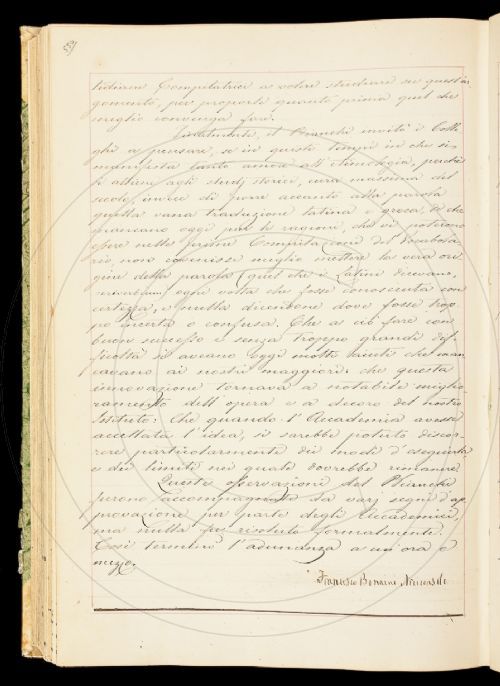 551
tazione Compilatrice a volere studiare su quest'ar
gomento, per proporle quanto prima quel che
meglio convenga fare.
Finalmente, il Bianchi invitò i Colle
ghi a pensare, se in questi tempi in che si
manifesta tanto amore all'etimologia, perchè
si attiene agli studj storici, cura massima del
secolo, invece di porre accanto alla parola
quella vana traduzione latina e greca, di che
mancano oggi più le ragioni, che vi potevano
essere nelle prime Compilazioni del Vocabola
rio, non convenisse meglio mettere la vera ori
gine della parola (quel che i latini dicevano,
ogni volta che fosse conosciuta con
certezza, e nulla dicendone dove fosse trop
po incerta o confusa. Che a ciò fare con
buon successo e senza troppo grande dif
ficoltà si aveano oggi molti aiuti che man
cavano ai nostri maggiori: che questa
innovazione tornava a notabile miglio
ramento dell'opera e a decoro del nostro
Istituto: che quando l'Accademia avesse
accettata l'idea, si sarebbe potuto discor
rere particolarmente dei modi d'eseguirla
e dei limiti nei quali dovrebbe rimanere.
Queste osservazioni del Bianchi
furono accompagnate da varj segni d'ap
provazione per parte degli Accademici,
ma nulla fu risoluto formalmente.
Così terminò l'adunanza a un'ora e
mezzo.
Francesco Bonaini